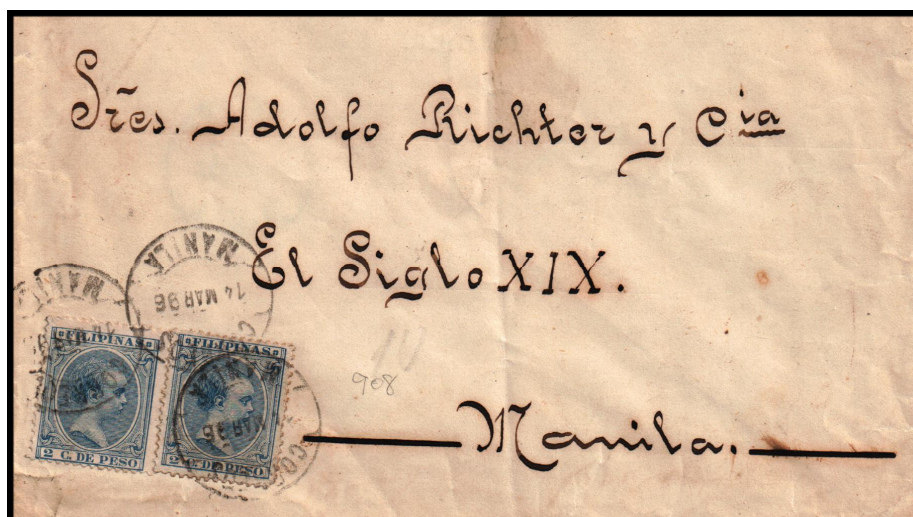 Sr̃es. Adolfo Richter y Cia
El Siglo XIX.
MANILA
14 MAR 96
MANILA
FILIPINAS
2 C. DE PESO
FILIPINAS
2 C. DE PESO
MAR 96
908
Manila.